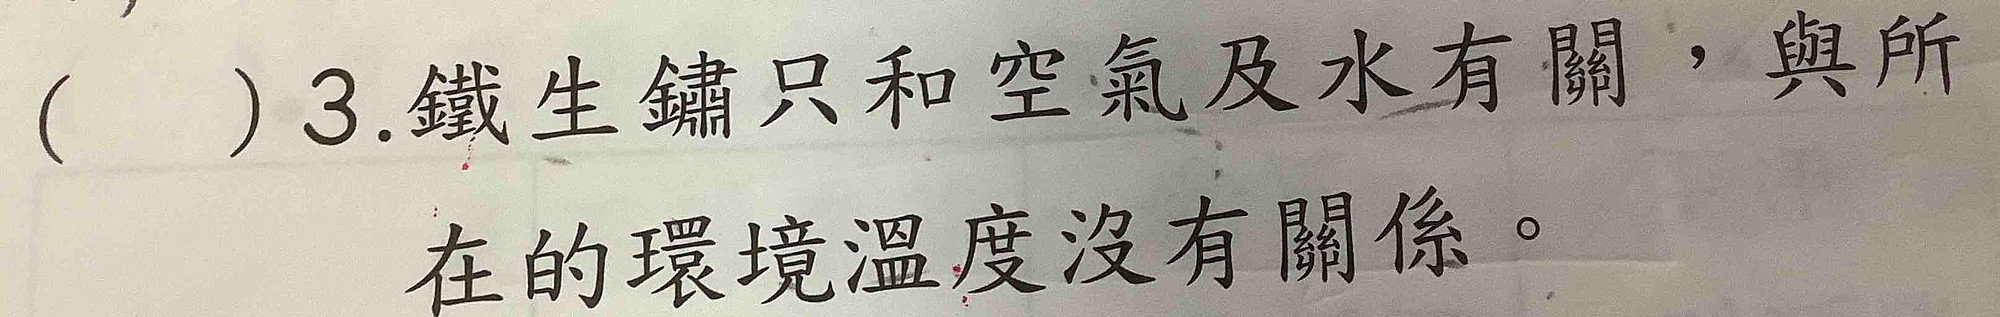 (　　)3.鐵生鏽只和空氣及水有關，與所
在的環境溫度沒有關係。